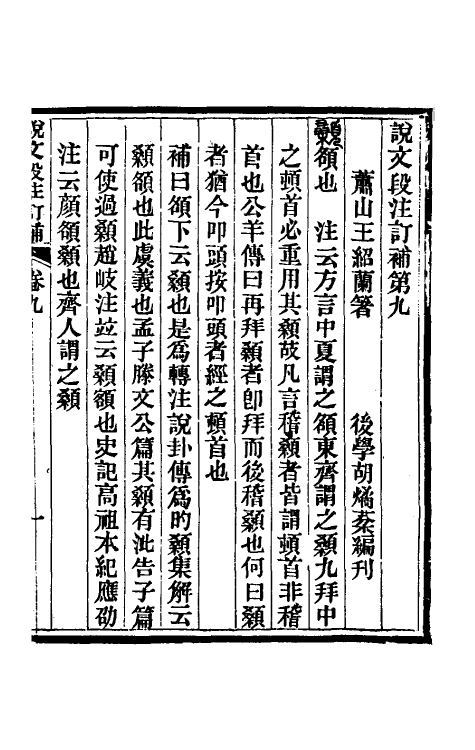 說文段注訂補第九
蕭山王紹蘭箸　後學胡燏棻編刊
顙頟也　注云方言中夏謂之頟東齊謂之顙九拜中
之頓首必重用其顙故凡言稽顙者皆謂頓首非稽
首也公羊傳曰再拜顙者卽拜而後稽顙也何曰顙
者猶今叩頭按叩頭者經之頓首也
補曰頟下云顙也是爲轉注說卦傳爲旳顙集解云
顙頟也此虞義也孟子滕文公篇其顙有泚告子篇
可使過顙趙岐注竝云顙頟也史記高祖本紀應劭
注云顔頟顙也齊人謂之顙
說文段注訂補　卷九　一